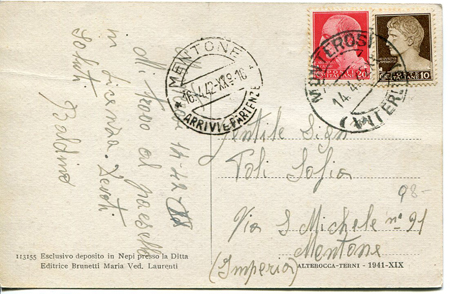 14.4.42 XX
Mi trovo al paesello
in licenza. Devoti
Saluti
Baldino
MENTONE
16.4.42-XX 9-10
ARRIVI E PARTENZE
MONTEROSI
14.4.42
(VITERBO)
20
10
Gentile Sig.na
Poli Sofia
Via S Michele n° 91
Mentone
(Imperia)
98-
113155 Esclusivo deposito in Nepi presso la Ditta
Editrice Brunetti Maria Ved. Laurenti
ALTEROCCA-TERNI - 1941-XIX